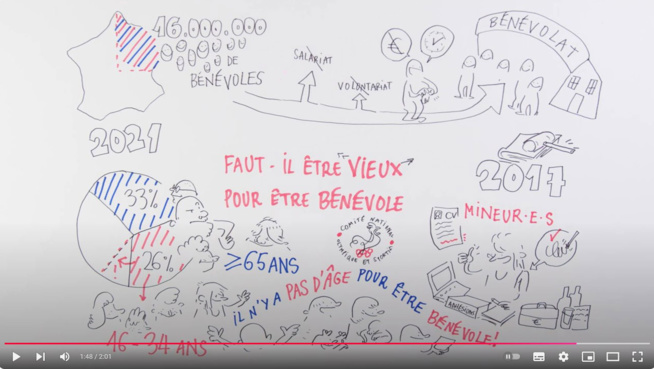 16.000.000
DE
BÉNÉVOLES
SALARIAT
VOLONTARIAT
€
BÉNÉVOLAT
2021
33%
26%
≥65 ANS
16-34 ANS
FAUT-IL ÊTRE VIEUX
POUR ÊTRE BÉNÉVOLE
COMITÉ NATIONAL
IL N'Y A PAS D'ÂGE POUR ÊTRE BÉNÉVOLE!
2017
CV
MINEUR·E·S
€
1:48 / 2:01